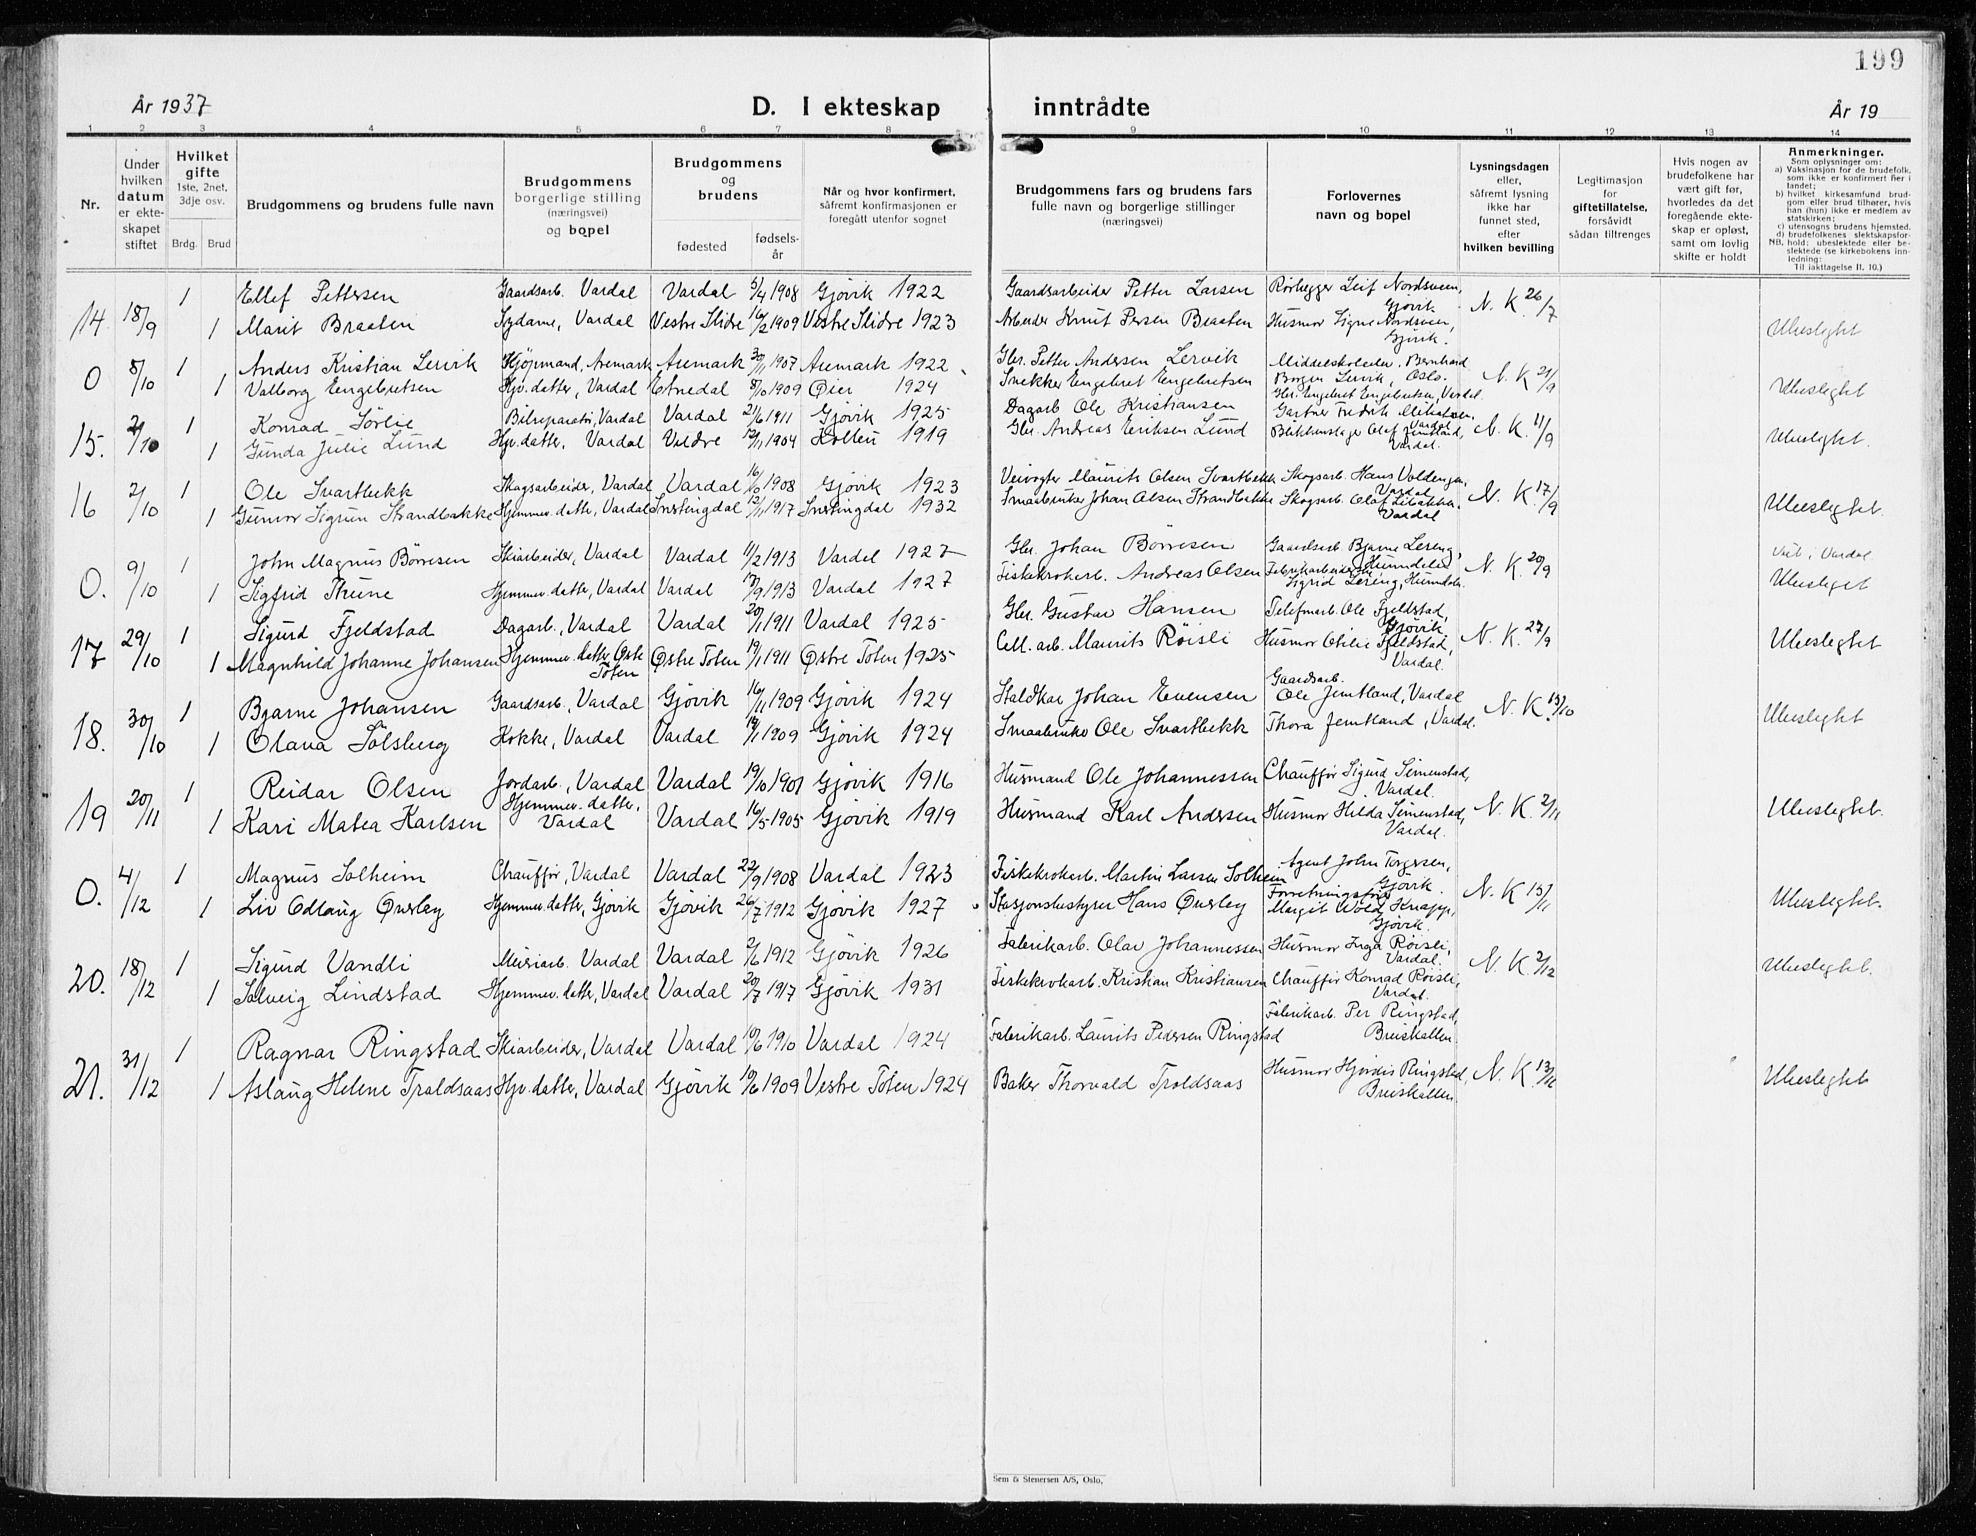 199
År 1937
D. I ekteskap inntrådte
År 19
1 2 3 4 5 6 7 8 9 10 11 12 13 14
Nr.
Under hvilken datum er ekteskapet stiftet
Hvilket gifte 1ste, 2net. 3dje osv.
Brdg. Brud
Brudgommens og brudens fulle navn
Brudgommens borgerlige stilling (næringsvei) og bopel
Brudgommens og brudens
fødested
fødselsår
Når og hvor konfirmert, såfremt konfirmasjonen er foregått utenfor sognet
Brudgommens fars og brudens fars fulle navn og borgerlige stillinger (næringsvei)
Forlovernes navn og bopel
Lysningsdagen eller, såfremt lysning ikke har funnet sted, efter hvilken bevilling
Legitimasjon for giftetillatelse, forsåvidt sådan tiltrenges
Hvis nogen av brudefolkene har vært gift før, hvorledes da det foregående ekteskap er opløst, samt om lovlig skifte er holdt
Anmerkninger.
Som oplysninger om:
a) Vaksinasjon for de brudefolk, som ikke er konfirmert her i landet;
b) hvilket kirkesamfund brudgom eller brud tilhører, hvis han (hun) ikke er medlem av statskirken;
c) utensogns brudens hjemsted.
d) brudefolkenes slektskapsforhold: ubeslektede eller beslektede (se kirkebokens innledning:
NB. Til iakttagelse II. 10.)
14 18/9 1 Ellef Pettersen Gaardsarb. Vardal Vardal 5/4 1908 Gjøvik 1922 Gaardsarbeider Petter Larsen Rørlegger Leif Nordsveen, Gjøvik N. K. 26/7
1 Marit Braaten Sydame, Vardal Vestre Slidre 16/2 1909 Vestre Slidre 1923 Arbeider Knut Persen Braaten Husmor Signe Nordsveen, Gjøvik. Ubeslegtet
0 8/10 1 Anders Kristian Lervik Kjøpmand, Aremark Aremark 30/11 1907 Aremark 1922 Gbr. Petter Andersen Lervik Middelskoleder. Bernhard Borgen Lervik, Oslo. N. K 21/9
1 Valborg Engebretsen Hjv. datter, Vardal Etnedal 8/10 1909 Øier 1924 Snekker Engebret Engebretsen Gbr. Engebret Engebretsen, Vardal Ubeslegtet
15. 2/10 1 Konrad Sörlie Bilreparatör, Vardal Vardal 21/6 1911 Gjøvik 1925 Dagarb Ole Kristiansen Gartner Fredrik Vardal N. K. 11/9
1 Gunda Julie Lund Hjv. datter, Vardal Valdre 12/11 1904 Kolbu 1919 Gbr. Andreas Eriksen Lund Blikkenslager Olaf Jemtland, Vardal. Ubeslegtet.
16 2/10 1 Ole Svartbekk Skogsarbeider, Vardal Vardal 16/9 1908 Gjøvik 1923 Veivogter Maurits Olsen Svartbekk Skogsarb. Hans Voldengen, Vardal N. K. 17/9
1 Gunvor Sigrun Strandbakke Hjemmev. datter, Vardal Snertingdal 12/11 1917 Snertingdal 1932 Smaabruker Johan Olsen Strandbakke Skogsarb. Olaf Libakken. Vardal Ubeslegtet.
0. 9/10 1 John Magnus Börresen Skiarbeider, Vardal Vardal 11/2 1913 Vardal 1927 Gbr. Johan Börresen Gaardsarb. Bjarne Lereng, Hunndalen N. K. 20/9 Viet i Vardal
1 Sigfrid Thune Hjemmev. datter, Vardal Vardal 17/9 1913 Vardal 1927 Fiskekrokarb. Andreas Olsen Fabrikarbeiderske Sigrid Lereng, Hunndalen Ubeslegtet
17 29/10 1 Sigurd Fjeldstad Dagarb., Vardal Vardal 20/1 1911 Vardal 1925 Gbr. Gustav Hansen Telefonarb. Ole Fjeldstad, Gjøvik N. K. 27/9
1 Magnhild Johanne Johansen Hjemmev. datter, Østre Toten Østre Toten 19/1 1911 Østre Toten 1925 Cell. arb. Maurits Röisli Husmor Otilie Fjeldstad, Vardal. Ubeslegtet
18. 30/10 1 Bjarne Johansen Gaardsarb., Vardal Gjøvik 16/11 1909 Gjøvik 1924 Staldkar Johan Evensen Gaardsarb. Ole Jemtland, Vardal N. K. 13/10
1 Olava Solsberg Kokke, Vardal Vardal 14/11 1909 Gjøvik 1924 Smaabruker Ole Svartbekk Thora Jemtland, Vardal. Ubeslegtet
19 20/11 1 Reidar Olsen Jordarb., Vardal Vardal 19/10 1901 Gjøvik 1916 Husmand Ole Johannessen Chauffør Sigurd Simenstad, Vardal.
1 Kari Matea Karlsen Hjemmev. datter, Vardal Vardal 16/5 1905 Gjøvik 1919 Husmand Karl Andersen Husmor Hilda Simenstad, Vardal. N. K. 2/11 Ubeslegtet.
0. 4/12 1 Magnus Solheim Chauffør, Vardal Vardal 22/9 1908 Vardal 1923 Fiskekrokarb. Martin Larsen Solheim Agent John Torgersen, Gjøvik. N. K 15/11
1 Liv Odlaug Øverby Hjemmev. datter, Gjøvik Gjøvik 26/7 1912 Gjøvik 1927 Stasjonsbestyrer Hans Øverby Forretningsfør. Margit Wold Knapp, Gjøvik. Ubeslegtet.
20. 18/12 1 Sigurd Vandli Meieriarb. Vardal Vardal 2/6 1912 Gjøvik 1926 Fabrikarb. Olav Johannessen Husmor Inga Røisli, Vardal. N. K. 2/12
1 Solveig Lindstad Hjemmev. datter, Vardal Vardal 20/7 1917 Gjøvik 1931 Fiskekrokarb. Kristian Kristiansen Chauffør Konrad Røisli, Vardal. Ubeslegtet.
21. 31/12 1 Ragnar Ringstad Skiarbeider, Vardal Vardal 10/6 1910 Vardal 1924 Fabrikarb. Laurits Pedersen Ringstad Fabrikarb. Per Ringstad, Breiskallen.
1 Aslaug Helene Traldsaas Hjv. datter, Vardal Gjøvik 10/6 1909 Vestre Toten 1924 Baker Thorvald Traldsaas Husmor Hjørdis Ringstad, Breiskallen N. K. 13/12 Ubeslegtet
Sem & Stenersen A/S, Oslo.